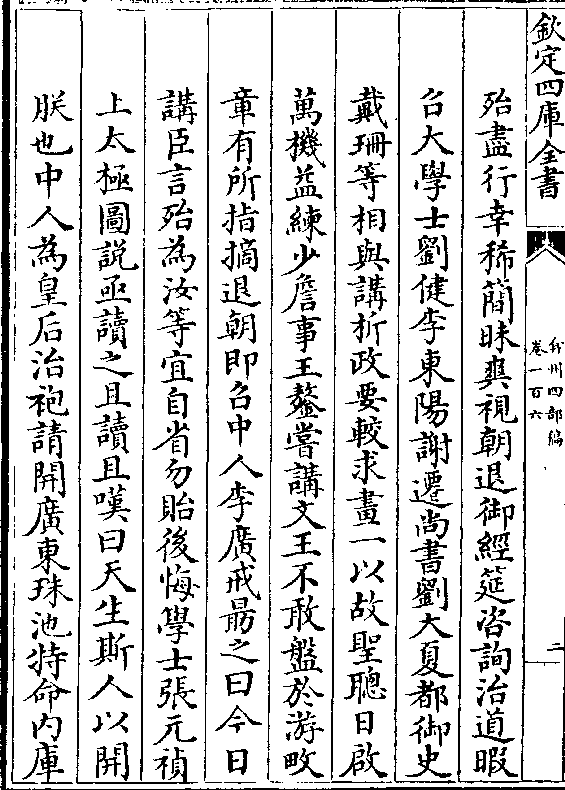 欽定四庫全書
弇州四部稿
卷一百六
二
殆盡行幸稀簡昧爽視朝退御經筵咨詢治道暇
召大學士劉健李東陽謝遷尚書劉大夏都御史
戴珊等相與講折政要較求畫一以故聖聰日啟
萬機益練少詹事王鏊嘗講文王不敢盤於游畋
章有所指摘退朝即召中人李廣戒勗之曰今日
講臣言殆為汝等宜自省勿貽後悔學士張元禎
上太極圖説亟讀之且讀且嘆曰天生斯人以開
朕也中人為皇后治袍請開廣東珠池持命内庫